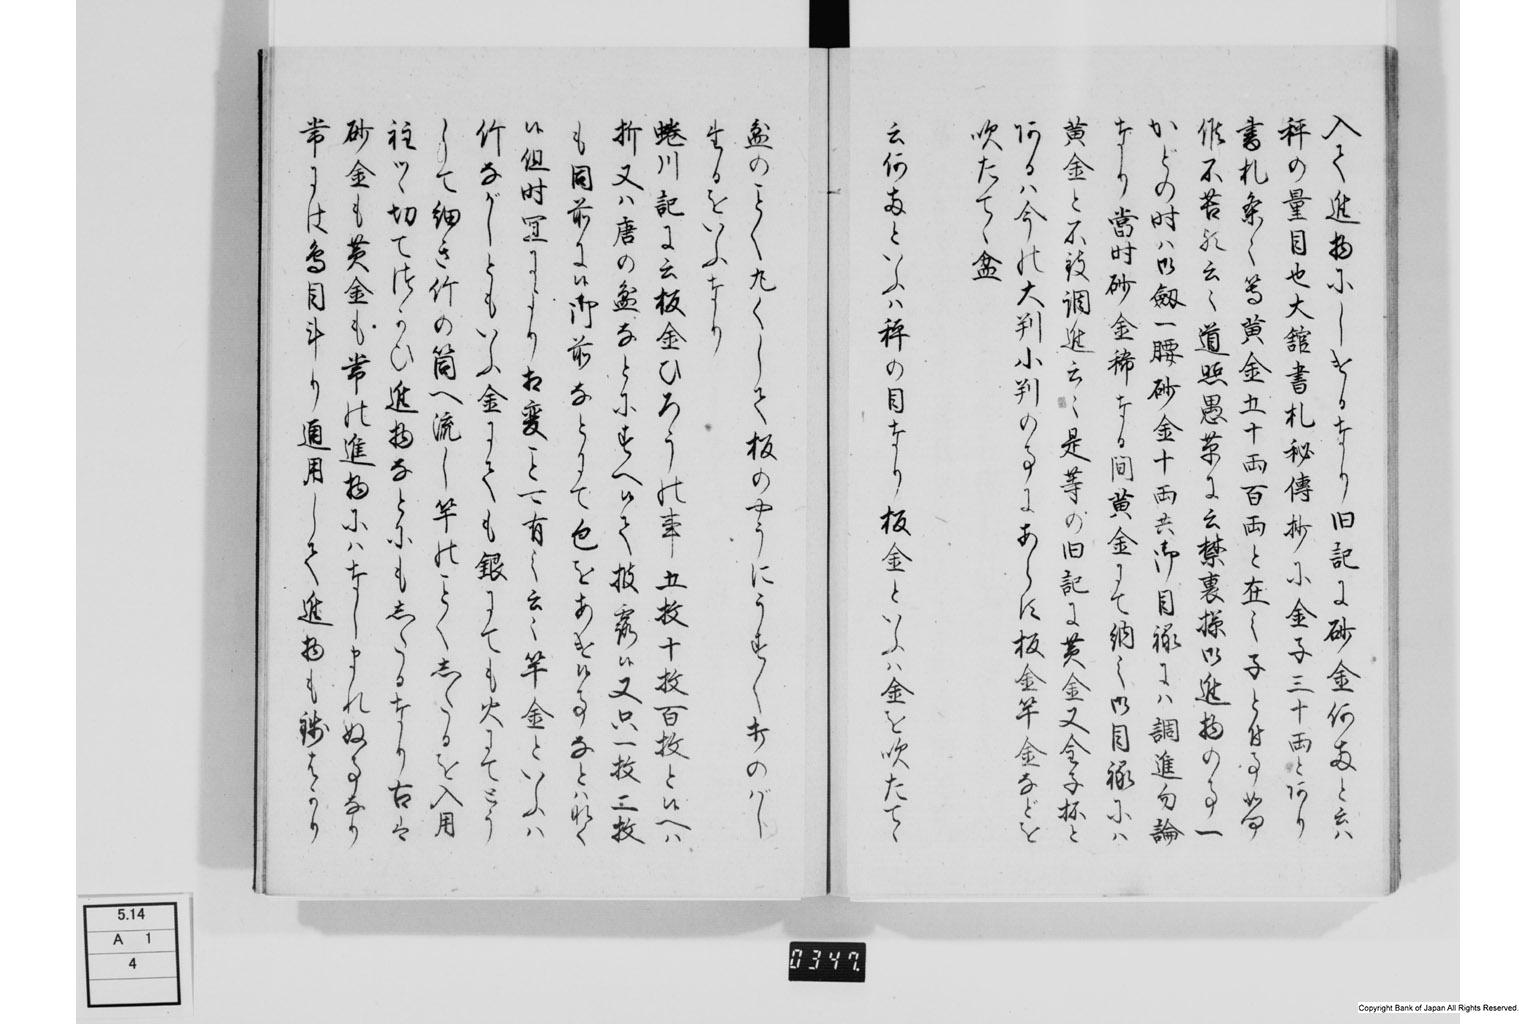 入て進物にしけるなり旧記に砂金何両と云ハ
秤の量目也大館書札秘傳抄に金子三十両とあり
書札条々等黄金五十両百両と在之子と付事必
候不苦歟云々道照愚草に云禁裏様御進物の事一
かどの時ハ御劔一腰砂金十両共御目禄にハ調進勿論
なり當时砂金稀なる间黄金にて納之御目禄にハ
黄金と不致調進云々是等の旧記に黄金又金子抔と
あるハ今の大判小判の事にあらす板金竿金などを
吹たてゝ盆
云何両といふハ秤の目なり板金といふハ金を吹たてゝ
盆のことく丸くして板のやうにうすくオのバし
なるをいふなり
蜷川記に云板金ひろうの事五枚十枚百枚といへハ
折又ハ唐の盆なとにすへ候て披露候又只一枚二枚
も同前に候御前なとにて包をあけ候事なとハなく
候但时宜により相変こと可有之云々竿金といふハ
竹ながしともいふ金にても銀にても火にてとら
して細き竹の筒へ流し竿のことくしたるを入用
程つゝ切てつかひ進物なとにもしたるなり古は
砂金も黄金も常の進物にハなしまれぬる事なり
常には鳥目斗り通用して進物も銭はかり
5.14
A 1
4
0347.
Copyright Bank of Japan All Rights Reserved.